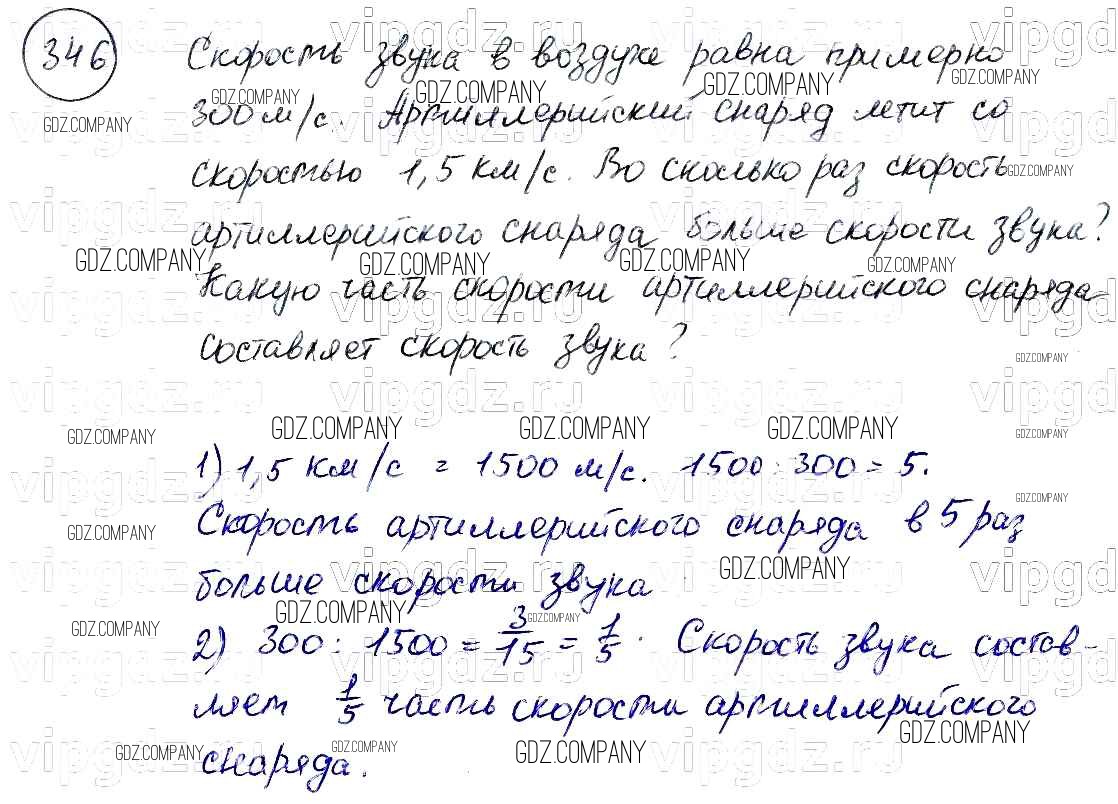 346 Скорость звука в воздухе равна примерно
300 м/с. Артиллерийский снаряд летит со
скоростью 1,5 км/с. Во сколько раз скорость
артиллерийского снаряда больше скорости звука?
Какую часть скорости артиллерийского снаряда
составляет скорость звука?
1) 1,5 км/с = 1500 м/с. 1500 : 300 = 5.
Скорость артиллерийского снаряда в 5 раз
больше скорости звука
2) 300 : 1500 = 3/15 = 1/5. Скорость звука состав-
ляет 1/5 часть скорости артиллерийского
снаряда.
vipgdz.ru
GDZ.COMPANY